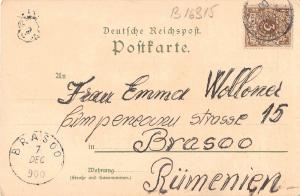 B16915
Deutsche Reichspost
Postkarte.
An
Frau Emma
strasse 15
in
Brasoo
Wohnung
(Straße und Hausnummer)
Rümenien
BRASOO
7
DEC
900